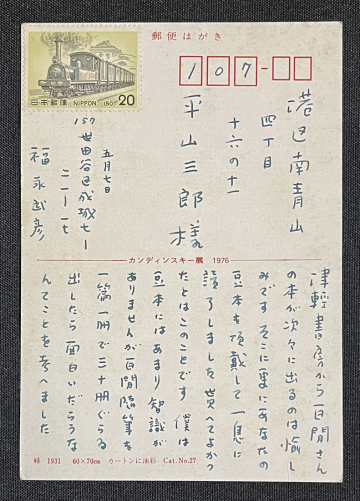 郵便はがき
日本郵便 NIPPON 20
107
港区南青山
四丁目
十六の十一
平山三郎様
五月七日
157
世田谷区成城七ー
二一ー一七
福永武彦
カンディンスキー展 1976
津軽書房から百閒さん
の本が次々に出るのは愉し
みです そこに更にあなたの
豆本を頂戴して一息に
読了しました 世界へてよかっ
たとはこのことです 僕は
豆本にはあまり智識が
ありませんが百閒随筆を
一篇一冊で三十冊ぐらゐ
出したら面白いだらうな
んてことを考へました
緑 1931 60×70cm カートンに油彩 Cat.No.27